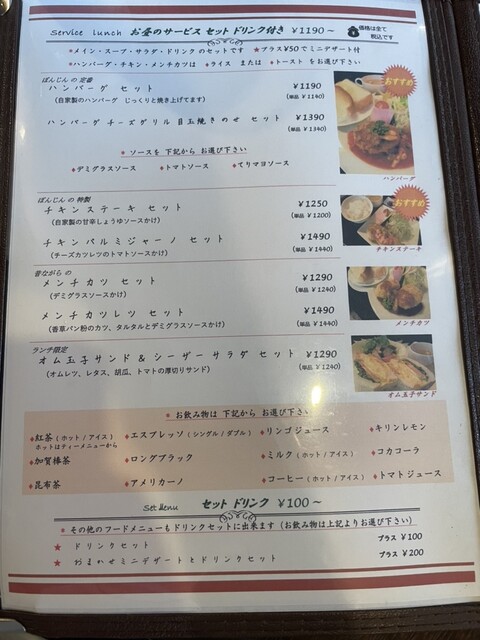 service lunch お昼のサービス セット ドリンク付き ¥1190～
価格は全て
税込です
*メイン・スープ・サラダ・ドリンクのセットです *プラス¥50でミニデザート付
*ハンバーグ・チキン・メンチカツは ♦ライス または ♦トースト をお選び下さい
ぱんじんの 定番
ハンバーグ セット ¥1190
(自家製のハンバーグ じっくりと焼き上げてます) (単品 ¥1140)
ハンバーグチーズグリル 目玉焼きのせ セット ¥1390
(単品 ¥1340)
* ソースを 下記から お選び下さい
♦デミグラスソース ♦トマトソース ♦てりマヨソース
おすすめ
ハンバーグ
ぱんじんの 特製
チキンステーキ セット ¥1250
(自家製の甘辛しょうゆソースかけ) (単品 ¥1200)
チキンパルミジャーノ セット ¥1490
(チーズカツレツのトマトソースかけ) (単品 ¥1440)
おすすめ
チキンステーキ
昔ながらの
メンチカツ セット ¥1290
(デミグラスソースかけ) (単品 ¥1240)
メンチカツレツ セット ¥1490
(香草パン粉のカツ、タルタルとデミグラスソースかけ) (単品 ¥1440)
メンチカツ
ランチ限定
オム玉子サンド & シーザーサラダ セット ¥1290
(オムレツ、レタス、胡瓜、トマトの厚切りサンド) (単品 ¥1240)
オム玉子サンド
* お飲み物は 下記から お選び下さい
♦紅茶(ホット/アイス) ♦エスプレッソ(シングル/ダブル) ♦リンゴジュース ♦キリンレモン
ホットはティーメニューから
♦加賀棒茶 ♦ロングブラック ♦ミルク(ホット/アイス) ♦コカコーラ
♦昆布茶 ♦アメリカーノ ♦コーヒー(ホット/アイス) ♦トマトジュース
Set Menu セット ドリンク ¥100～
* その他のフードメニューもドリンクセットに出来ます(お飲み物は上記よりお選び下さい)
★ ドリンクセット プラス ¥100
★ おまかせミニデザートとドリンクセット プラス ¥200